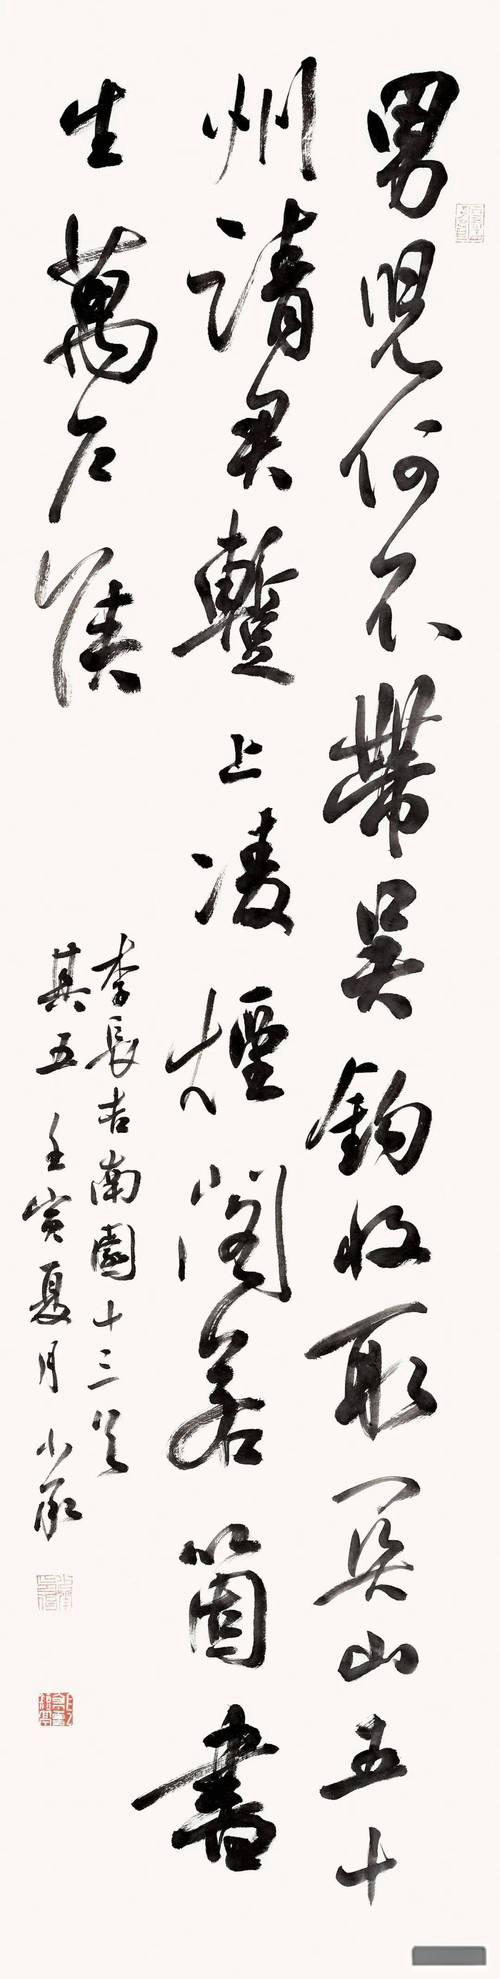 男兒何不帶吳鉤收取関山五十
州請君暫上凌煙閣若箇書
生萬戶侯
李長吉南園十三首
其五 壬寅夏月 小承